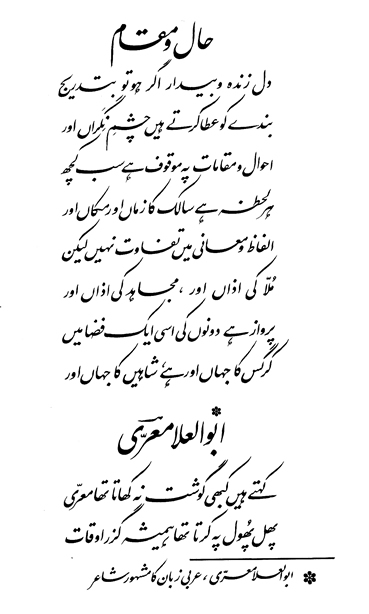 حال و مقام
دل زندہ و بیدار اگر ہو تو بتدریج
بندے کو عطا کرتے ہیں چشمِ نگراں اور
احوال و مقامات پہ موقوف ہے سب کچھ
ہر لحظہ ہے سالک کا زماں اور مکاں اور
الفاظ و معانی میں تفاوت نہیں لیکن
مُلّا کی اذاں اور ، مجاہد کی اذاں اور
پرواز ہے دونوں کی اسی ایک فضا میں
کرگس کا جہاں اور ہے شاہیں کا جہاں اور
ابوالعلا معرّیؔ*
کہتے ہیں کبھی گوشت نہ کھاتا تھا معرّی
پھل پھُول پہ کرتا تھا ہمیشہ گزر اوقات
* ابوالعلا معرّی ، عربی زبان کا مشہور شاعر